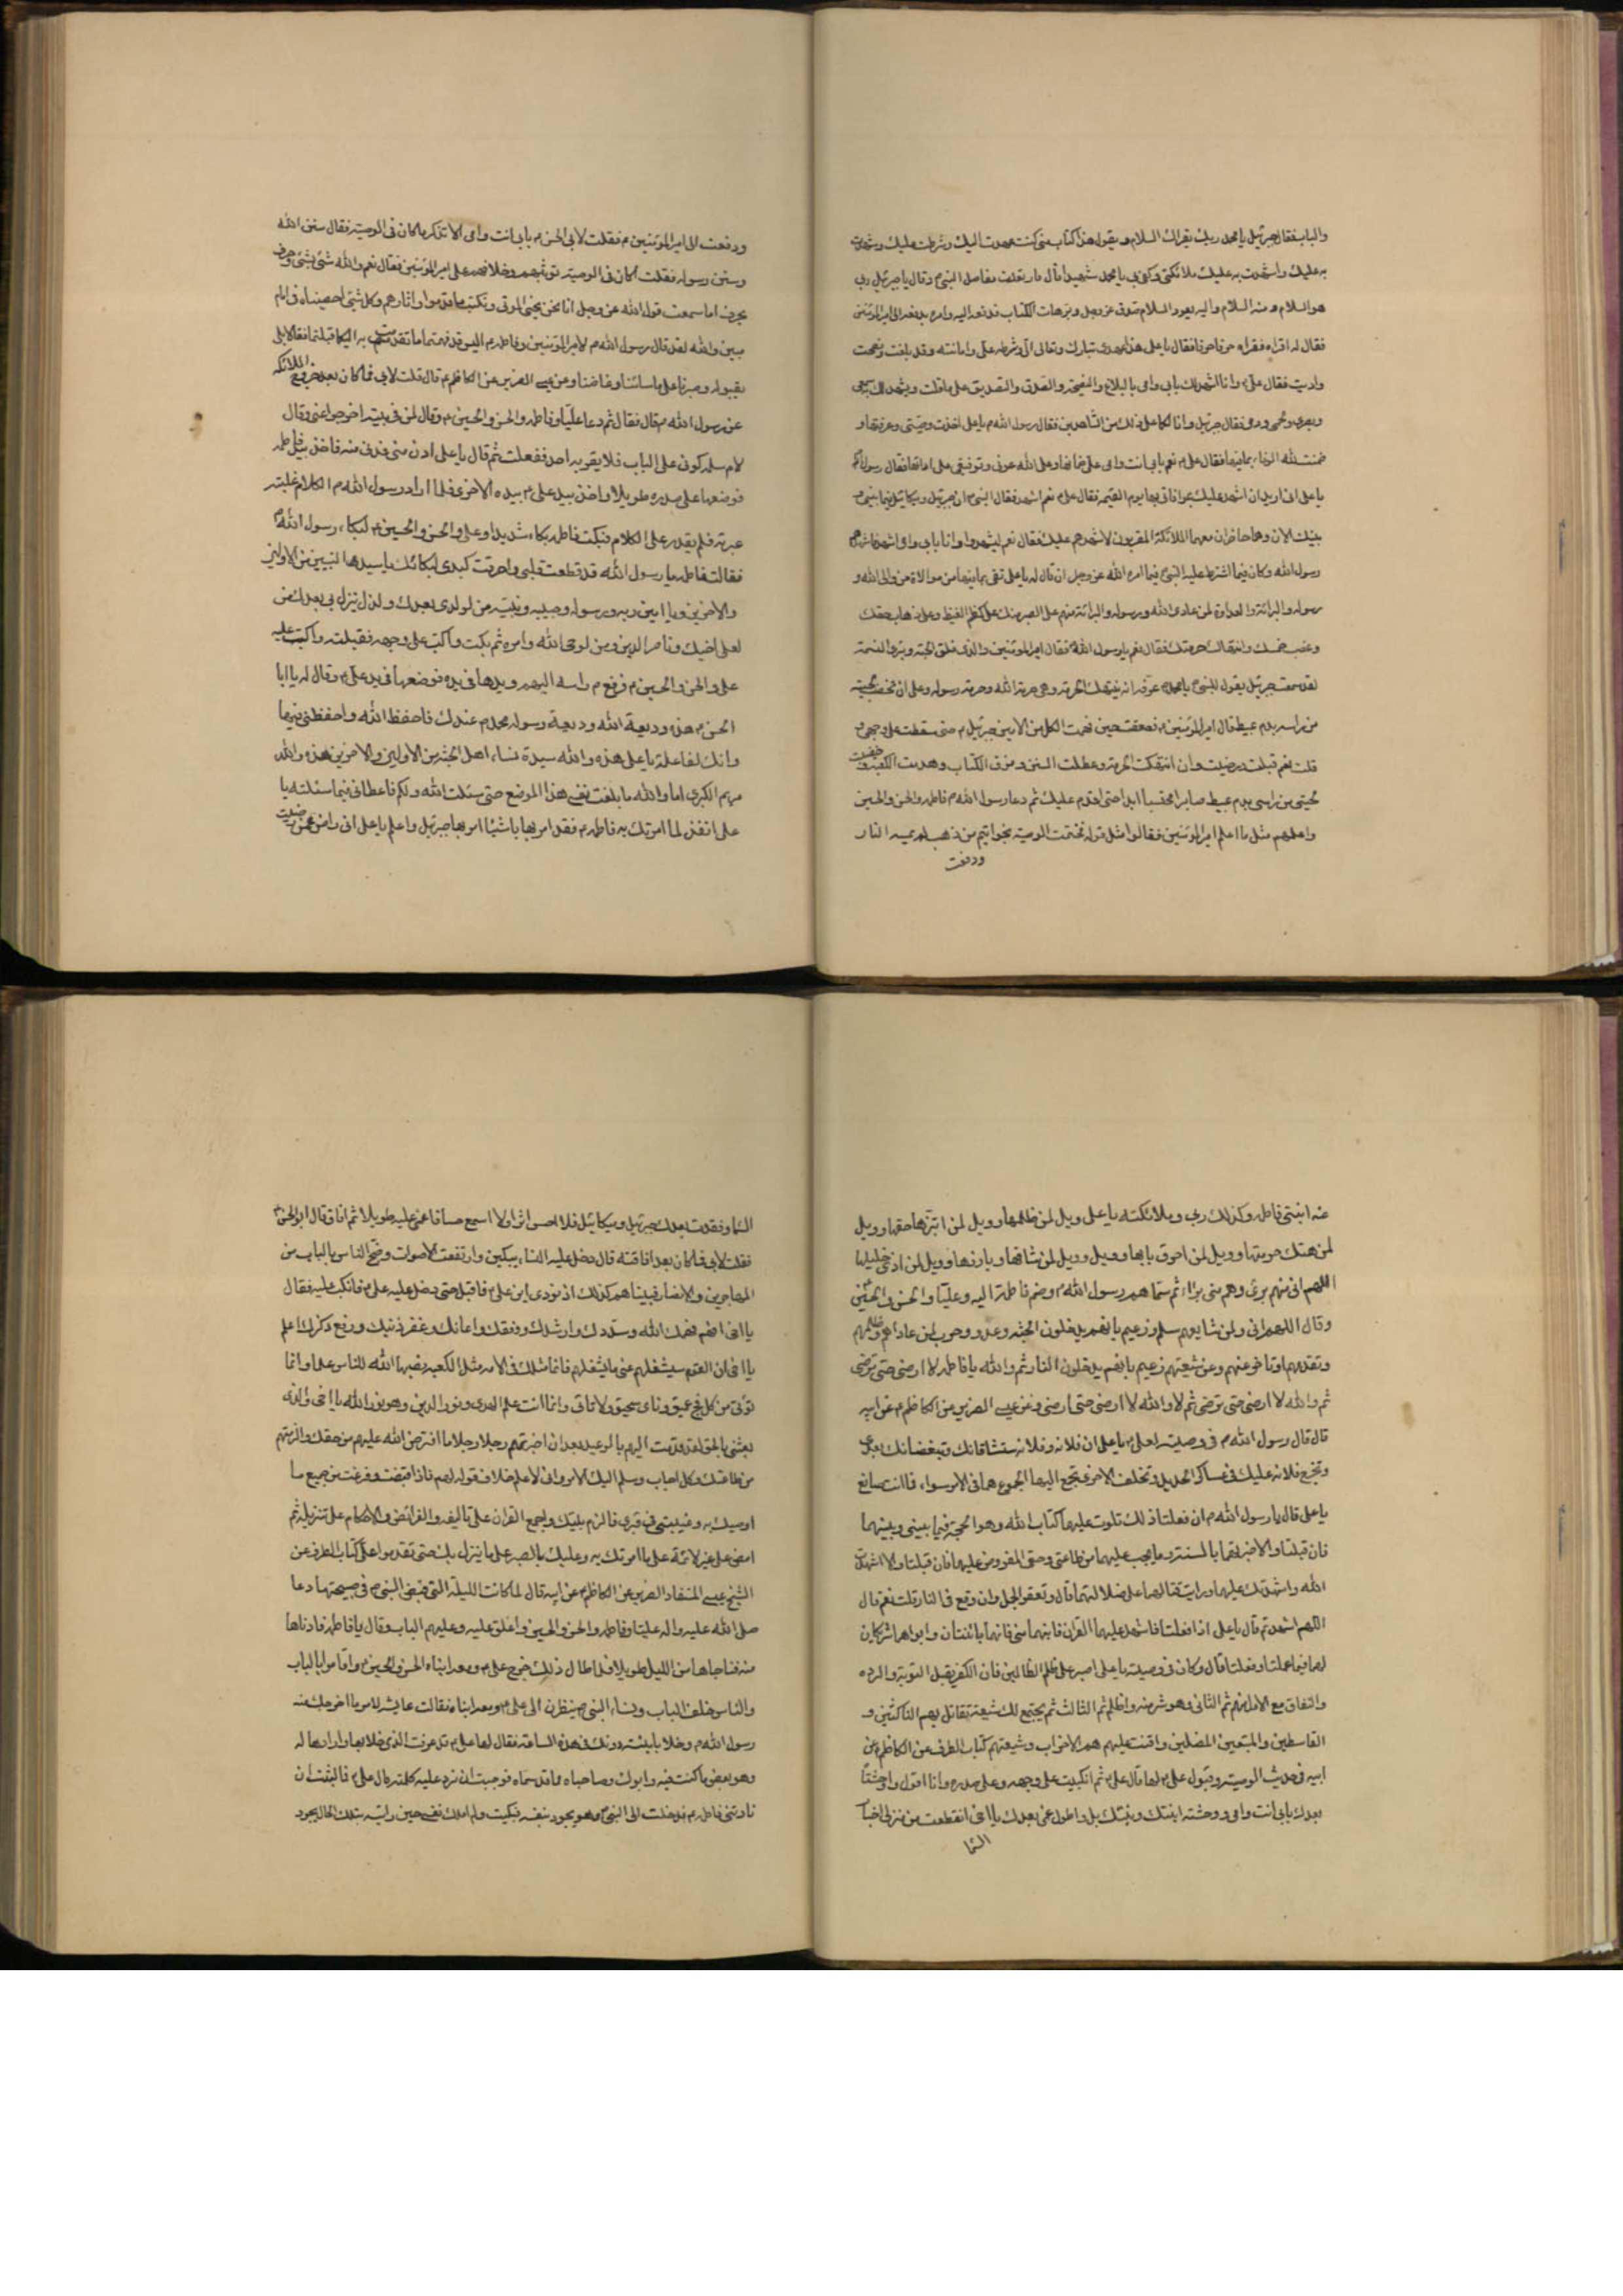 والباب فقال جبرئيل يا محمد ربك يقرأك السلام ويقول هذا كتاب بما كنت عهدت اليك وشرطت عليك وشهدت
به عليك واشهدت به عليك ملائكتي وكفى بي يا محمد شهيدا قال فارتعدت مفاصل النبي م وقال يا جبرئيل ربي
هو السلام ومنه السلام واليه يعود السلام صدق عز وجل وبر هات الكتاب فدفعه اليه وامره بدفعه الى امير المؤمنين
فقال له اقراه فقراه حرفا حرفا فقال يا علي هذا عهد ربي تبارك وتعالى الي وشرطه علي وامانته وقد بلغت ونصحت
واديت فقال علي م وانا اشهد لك بابي وامي بالبلاغ والنصيحة والصدق والتصديق على ما قلت ويشهد لك سمعي
وبصري ولحمي ودمي فقال جبرئيل وانا لكما على ذلك من الشاهدين فقال رسول الله م يا علي اخذت وصيتي وعرفتها و
ضمنت لله الوفاء بما فيها فقال علي م نعم بابي انت وامي علي ضمانها وعلى الله عوني وتوفيقي على ادائها فقال رسول الله
يا علي اني اريد ان اشهد عليك بموافاتي بها يوم القيمة فقال علي م نعم اشهد فقال النبي م ان جبرئيل وميكائيل فيما بيني و
بينك الان وهما حاضران معهما الملائكة المقربون لاشهدهم عليك فقال نعم ليشهدوا وانا بابي وامي اشهدهم فاشهدهم
رسول الله وكان فيما اشترط عليه النبي م فيما امره الله عز وجل ان قال له يا علي تفي بما فيها من موالاة من والى الله و
رسوله والبرائة والعداوة لمن عادى الله ورسوله والبرائة منهم على الصبر منك على كظم الغيظ وعلى ذهاب حقك
وغصب خمسك وانتهاك حرمتك فقال نعم يا رسول الله م فقال امير المؤمنين والذي فلق الحبة وبرء النسمة
لقد سمعت جبرئيل يقول للنبي م يا محمد عرفه انه ينتهك الحرمة وهي حرمة الله وحرمة رسوله وعلى ان تخضب لحيته
من راسه بدم عبيط قال امير المؤمنين م فصعقت حين فهمت الكلمة من الامين جبرئيل م حتى سقطت على وجهي و
قلت نعم قبلت ورضيت وان انتهكت الحرمة وعطلت السنن ومزق الكتاب وهدمت الكعبة وخضبت
لحيتي من راسي بدم عبيط صابرا محتسبا ابدا حتى اقدم عليك ثم دعا رسول الله م فاطمة والحسن والحسين
واعلمهم مثل ما اعلم امير المؤمنين فقالوا مثل قوله فختمت الوصية بخواتيم من ذهب لم تمسه النار
ودفعت
ودفعت الى امير المؤمنين م فقلت لابي الحسن م بابي انت وامي الا تذكر ما كان في الوصية فقال سنن الله
وسنن رسوله فقلت اكان في الوصية توثبهم وخلافهم على امير المؤمنين فقال نعم والله شئ بشئ وحرف
بحرف اما سمعت قول الله عز وجل انا نحن نحيي الموتى ونكتب ما قدموا واثارهم وكل شئ احصيناه في امام
مبين والله لقد قال رسول الله م لامير المؤمنين وفاطمة م اليس قد فهمتما ما تقدمت به اليكما وقبلتما فقالا بلى
بقبوله وصبرنا على ما سائنا وغاضنا وعن عيسى الضرير عن الكاظم م قال قلت لابي فما كان بعد خروج الملائكة
عن رسول الله م قال فقال ثم دعا عليا وفاطمة والحسن والحسين م وقال لمن في بيته اخرجوا عني وقال
لام سلمة كوني على الباب فلا يقربه احد ففعلت ثم قال يا علي ادن مني فدنى منه فاخذ بيد فاطمة
فوضعها على صدره طويلا واخذ بيد علي م بيده الاخرى فلما اراد رسول الله م الكلام غلبته
عبرته فلم يقدر على الكلام فبكت فاطمة بكاء شديدا وعلي والحسن والحسين م لبكاء رسول الله م
فقالت فاطمة يا رسول الله قد قطعت قلبي واحرقت كبدي لبكائك يا سيد النبيين من الاولين
والاخرين ويا امين ربه ورسوله وحبيبه ونبيه من لولدي بعدك ولذل ينزل بي بعدك من
لعلي اخيك وناصر الدين ومن لوحي الله وامره ثم بكت واكبت على وجهه فقبلته واكب عليه
علي والحسن والحسين م فرفع م راسه اليهم ويدها في يده فوضعها في يد علي م وقال له يا ابا
الحسن م هذه وديعة الله ووديعة رسوله محمد م عندك فاحفظ الله واحفظني فيها
وانك لفاعلة يا علي هذه والله سيدة نساء اهل الجنة من الاولين والاخرين هذه والله
مريم الكبرى اما والله ما بلغت نفسي هذا الموضع حتى سئلت الله ولكم فاعطاني فيما سئلته يا
علي انفذ لما امرتك به فاطمة م فقد امرتها باشياء امر بها جبرئيل واعلم يا علي اني راض عمن رضيت
عنه ابنتي فاطمة وكذلك ربي وملائكته يا علي ويل لمن ظلمها وويل لمن ابتزها حقها وويل
لمن هتك حرمتها وويل لمن احرق بابها وويل وويل لمن شاقها وبارزها وويل لمن اذى خليلها
اللهم اني منهم برئ وهم مني براء ثم سماهم رسول الله م وضم فاطمة اليه وعليا والحسن والحسين
وقال اللهم اني ولمن شايعهم سلم وزعيم بانهم يدخلون الجنة وعدو وحرب لمن عاداهم وظلمهم
وتقدمهم او تاخر عنهم وعن شيعتهم زعيم بانهم يدخلون النار ثم والله يا فاطمة لا ارضى حتى ترضى
ثم والله لا ارضى حتى ترضى ثم لا والله لا ارضى حتى ترضى وعن عيسى الضرير عن الكاظم م عن ابيه
قال قال رسول الله م في وصيته لعلي م يا علي ان فلانة وفلانة ستشاقانك وتبغضانك بعدي
وتخرج فلانة عليك في عساكر الحديد وتخلف الاخرى تجمع اليها الجموع هما في الامر سواء فما انت صانع
يا علي قال يا رسول الله م ان فعلتا ذلك تلوت عليهما كتاب الله وهو الحجة فيما بيني وبينهما
فان قبلتا والا خبرتهما بالسنة وما يجب عليهما من طاعتي وحقي المفروض عليهما فان قبلتا والا اشهدت
الله واشهدتك عليهما ورايت قتالهما على ضلالتهما قال وتعقر الجمل وان وقع في النار قلت نعم قال
اللهم اشهد ثم قال يا علي اذا فعلتا فاشهد عليهما القران فابنهما مني فانهما بائنتان وابواهما شريكان
لهما فيما عملتا وفعلتا قال وكان في وصيته يا علي اصبر على ظلم الظالمين فان الكفر يقبل التوبة والردة
والنفاق مع الاول منهم ثم الثاني وهو شر منه واظلم ثم الثالث ثم يجتمع لك شيعة تقاتل بهم الناكثين و
القاسطين والمتبعين المضلين واقنت عليهم هم الاحزاب وشيعتهم كتاب الطرف عن الكاظم م عن
ابيه في حديث الوصية وقبول علي م لها قال علي م ثم انكببت على وجهه وعلى صدره وانا اقول واوحشتاه
بعدك بابي انت وامي ووحشة ابنتك وبنيك بل واطول غمي بعدك يا اخي انقطعت من منزلي اخبار
السما
السما وفقدت بعدك جبرئيل وميكائيل فلا احس اثرا ولا اسمع حسا فاغمي عليه طويلا ثم افاق قال ابو الحسن م
فقلت لابي فما كان بعد افاقته قال دخل عليه النساء يبكين وارتفعت الاصوات وضج الناس بالباب من
المهاجرين والانصار فبينا هم كذلك اذ نودي اين علي م فاقبل حتى دخل عليه علي م فانكب عليه فقال
يا اخي افهم فهمك الله وسددك وارشدك ووفقك واعانك وغفر ذنبك ورفع ذكرك اعلم
يا اخي ان القوم سيشغلهم عني ما يشغلهم فانما مثلك في الامة مثل الكعبة نصبها الله للناس علما وانما
تؤتى من كل فج عميق ونأى سحيق ولا تاتي وانما انت علم الهدى ونور الدين وهو نور الله يا اخي والذي
بعثني بالحق لقد قدمت اليهم بالوعيد بعد ان اخبرتهم رجلا رجلا ما افترض الله عليهم من حقك والزمهم
من طاعتك وكل اجاب وسلم اليك الامر واني لاعلم خلاف قولهم فاذا قبضت وفرغت من جميع ما
اوصيك به وغيبتني في قبري فالزم بيتك واجمع القران على تاليفه والفرائض والاحكام على تنزيله ثم
امض على غير لائمة على ما امرتك به وعليك بالصبر على ما ينزل بك حتى تقدموا علي كتاب الطرف عن
الشيخ عيسى المستفاد الضرير عن الكاظم م عن ابيه قال لما كانت الليلة التي قبض النبي م في صبيحتها دعا
صلى الله عليه واله عليا وفاطمة والحسن والحسين واغلق عليه وعليهم الباب وقال يا فاطمة فادناها
منه فناجاها من الليل طويلا فلما طال ذلك خرج علي م ومعه ابناه الحسن والحسين م واقاموا بالباب
والناس خلف الباب ونساء النبي م ينظرن الى علي م ومعه ابناه فقالت عايشة لامر ما اخرجك منه
رسول الله م وخلا بابنته دونك في هذه الساعة فقال لها علي م قد عرفت الذي خلا بها وارادها له
وهو بعض ما كنت فيه وابوك وصاحباه مما قد سماه فوجمت ان ترد عليه كلمة قال علي م فما لبثت ان
نادتني فاطمة م فدخلت الى النبي م وهو يجود بنفسه فبكيت ولم املك نفسي حين رايته بتلك الحال يجود